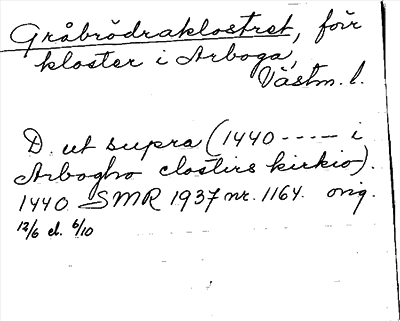 Gråbrödraklostret, förr
kloster i Arboga,
Västm. l.
D. ut supra (1440 ----- i
Arbogho closters kirkio).
1440 SMR 1937 nr. 1164. orig.
12/6 el. 6/10